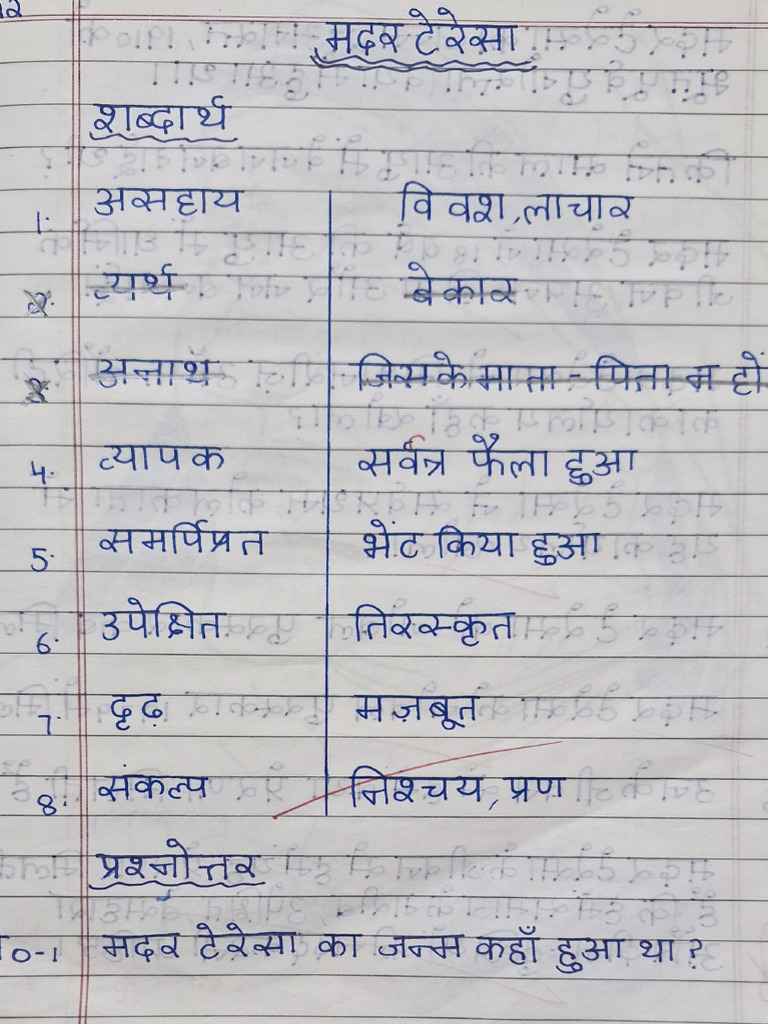 मदर टेरेसा
शब्दार्थ
1. असहाय विवश, लाचार
2. व्यर्थ बेकार
3. अनाथ जिसके माता - पिता न हों
4. व्यापक सर्वत्र फैला हुआ
5. समर्पित भेंट किया हुआ
6. उपेक्षित तिरस्कृत
7. दृढ़ मज़बूत
8. संकल्प निश्चय, प्रण
प्रश्नोत्तर
0-1 मदर टेरेसा का जन्म कहाँ हुआ था?